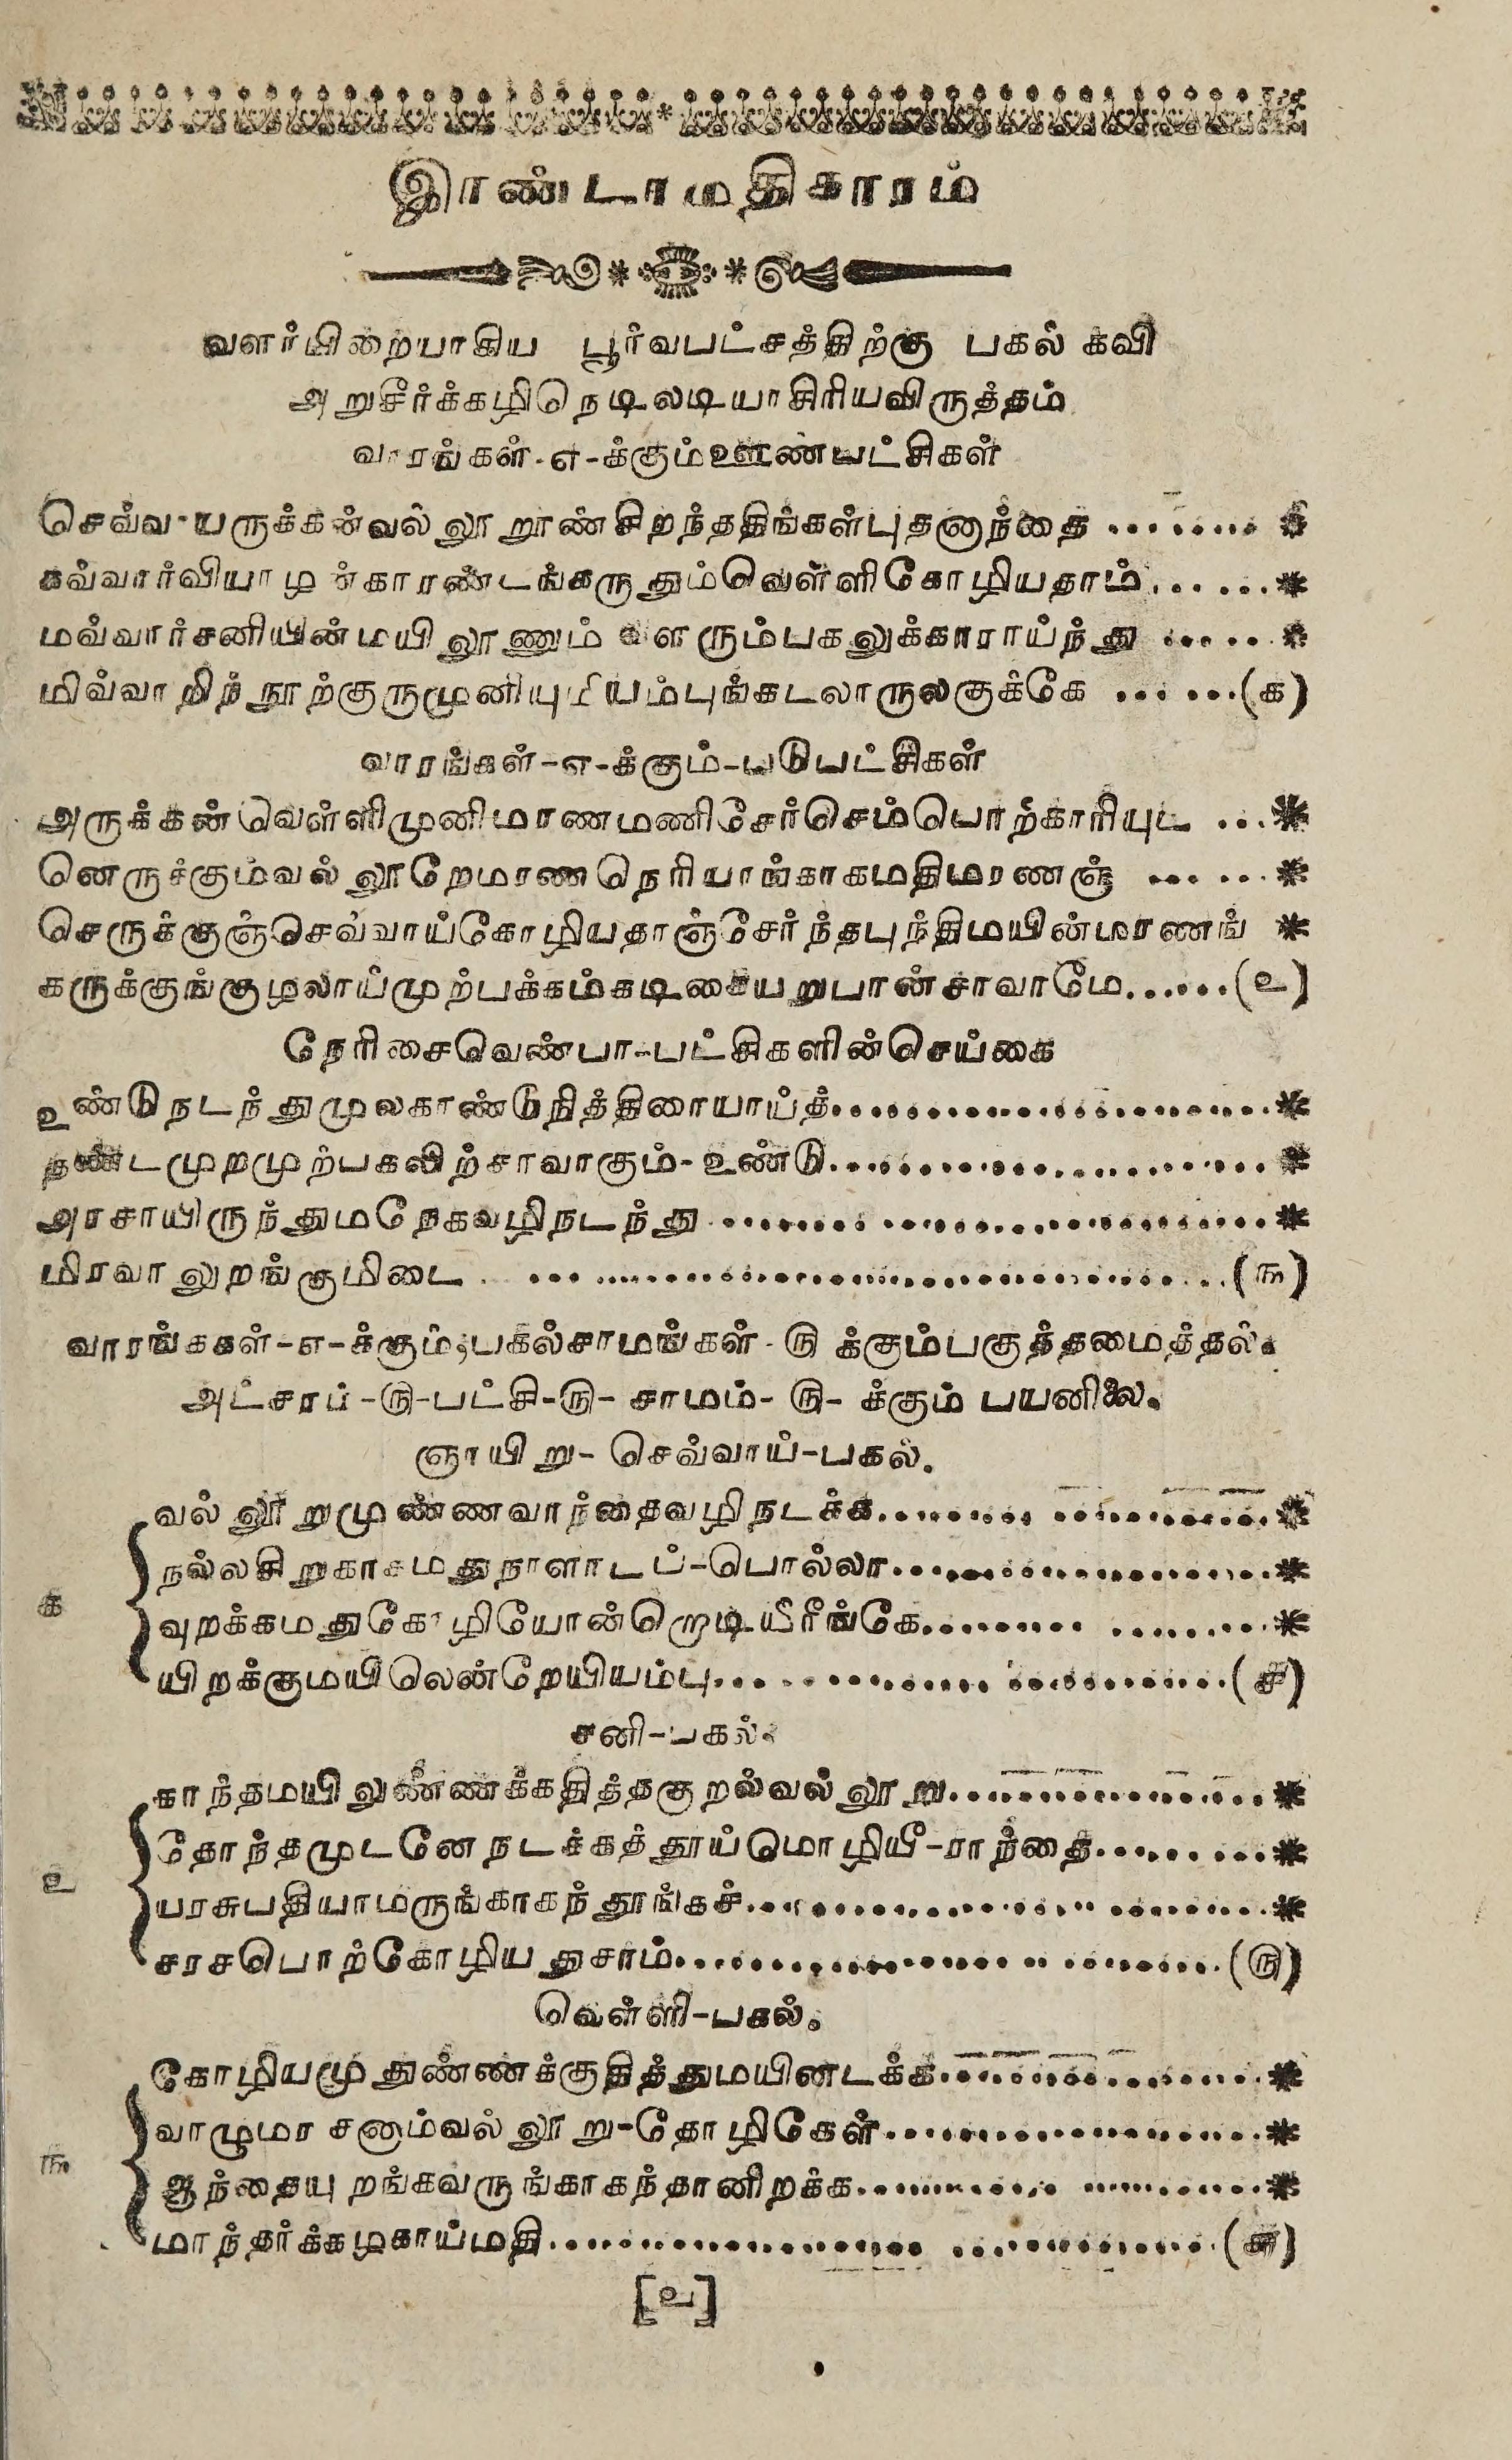 இரண்டாமதிகாரம்
வளர்பிறையாகிய பூர்வபட்சத்திற்கு பகல் கவி
அறுசீர்க்கழிநெடிலடியாசிரியவிருத்தம்
வாரங்கள்-எ-க்கும்ஊண்பட்சிகள்
செவ்வ-யருக்கன்வல்லூறூண்சிறந்ததிங்கள்புதனாந்தை ........ *
கவ்வார்வியாழன்காரண்டங்கருதும்வெள்ளிகோழியதாம்......*
மவ்வார்சனியின்மயிலூணும் வளரும்பகலுக்காராய்ந்து ..... *
மிவ்வாறிந்நூற்குருமுனியுமியம்புங்கடலாருலகுக்கே ......(௧)
வாரங்கள்-எ-க்கும்-படுபட்சிகள்
அருக்கன்வெள்ளிமுனிமாணமணிசேர்செம்பொற்காரியுட ...*
னெருக்கும்வல்லூறேமரணநெரியாங்காகமதிமரணஞ் ......*
செருக்குஞ்செவ்வாய்கோழியதாஞ்சேர்ந்தபுந்திமயின்மரணங் *
கருக்குங்குழலாய்முற்பக்கம்கடிகையறுபான்சாவாமே......(௨)
நேரிசைவெண்பா-பட்சிகளின்செய்கை
உண்டுநடந்துமுலகாண்டுநித்திரையாய்த்..........................*
தண்டமுறமுற்பகலிற்சாவாகும்-உண்டு..........................*
அரசாயிருந்துமநேகவழிநடந்து ..........................*
மிரவாலுறங்குமிடை. ..........................(௩)
வாரங்ககள்-எ-க்கும்,பகல்சாமங்கள்-ரு க்கும்பகுத்தமைத்தல்.
அட்சரம்-ரு-பட்சி-ரு- சாமம்-ரு- க்கும் பயனிலை.
ஞாயிறு- செவ்வாய்-பகல்.
வல்லூறுமுண்ணவாந்தைவழிநடக்க.......... ..........*
நல்லசிறுகாகமதுநாளாடப்-பொல்லா....................*
௧
வுறக்கமதுகோழியோன்றொடியீரீங்கே......... .........*
யிறக்குமயிலென்றேயியம்பு....................(௪)
சனி-பகல்.
காந்தமயிலுண்ணக்கதித்தகுறல்வல்லூறு................*
தோந்தமுடனேநடக்கத்தூய்மொழியீ-ராந்தை.........*
௨
யரசுபதியாமருங்காகந்தூங்கச்....................*
சரசபொற்கோழியதுசாம்....................(௫)
வெள்ளி-பகல்.
கோழியமூதுண்ணக்குதித்துமயினடக்க................*
வாழுமரசனும்வல்லூறு-தோழிகேள்..................*
௩
ஆந்தையுறங்கவருங்காகந்தானிறக்க.......... ..........*
மாந்தர்க்கழகாய்மதி.................... ..........(௬)
[௨]